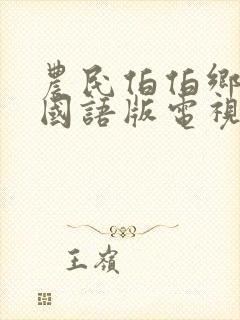 農民伯伯鄉
國語版電視
王嶺